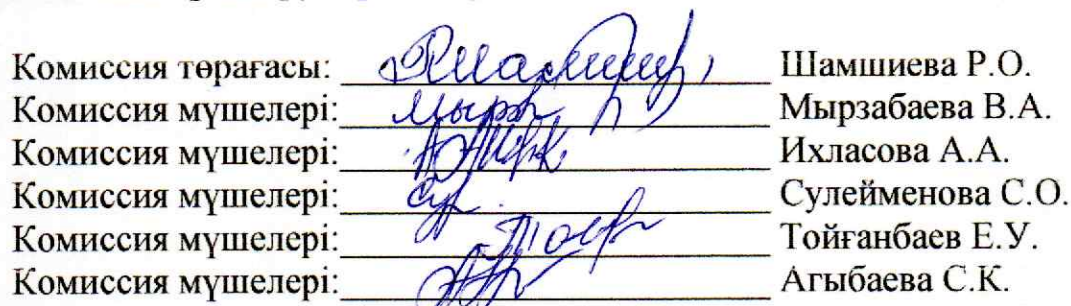 Комиссия төрағасы: Шамшиева Р.О.
Комиссия мүшелері: Мырзабаева В.А.
Комиссия мүшелері: Ихласова А.А.
Комиссия мүшелері: Сулейменова С.О.
Комиссия мүшелері: Тойғанбаев Е.У.
Комиссия мүшелері: Агыбаева С.К.